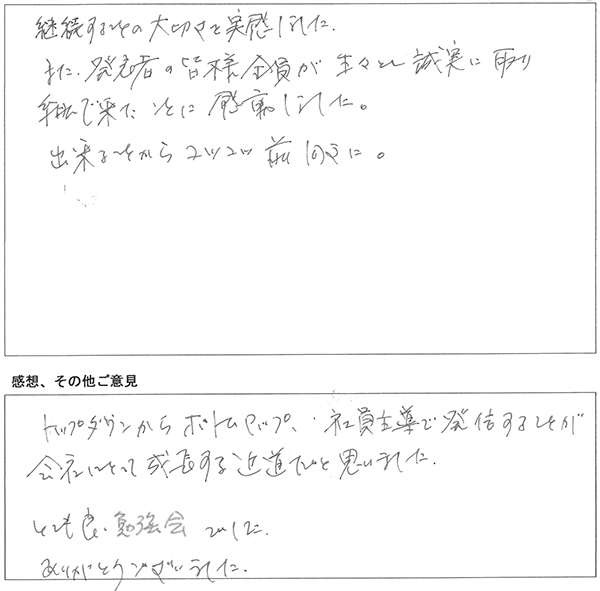 継続することの大切さを実感しました。
また、発表者の皆様全員が生々と誠実に取り
組んで来たことに感動しました。
出来ることからコツコツ前向きに。
感想、その他ご意見
トップダウンからボトムアップ、社員主導で発信することが
会社にとって成長する近道だと思いました。
とても良い勉強会でした。
ありがとうございました。